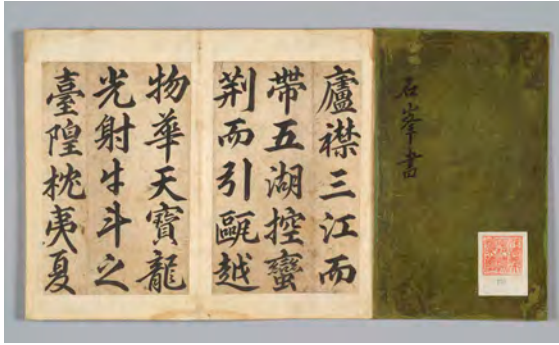 石峯書
廬襟三江而
帶五湖控蠻
荆而引甌越
物華天寶龍
光射牛斗之
臺隍枕夷夏